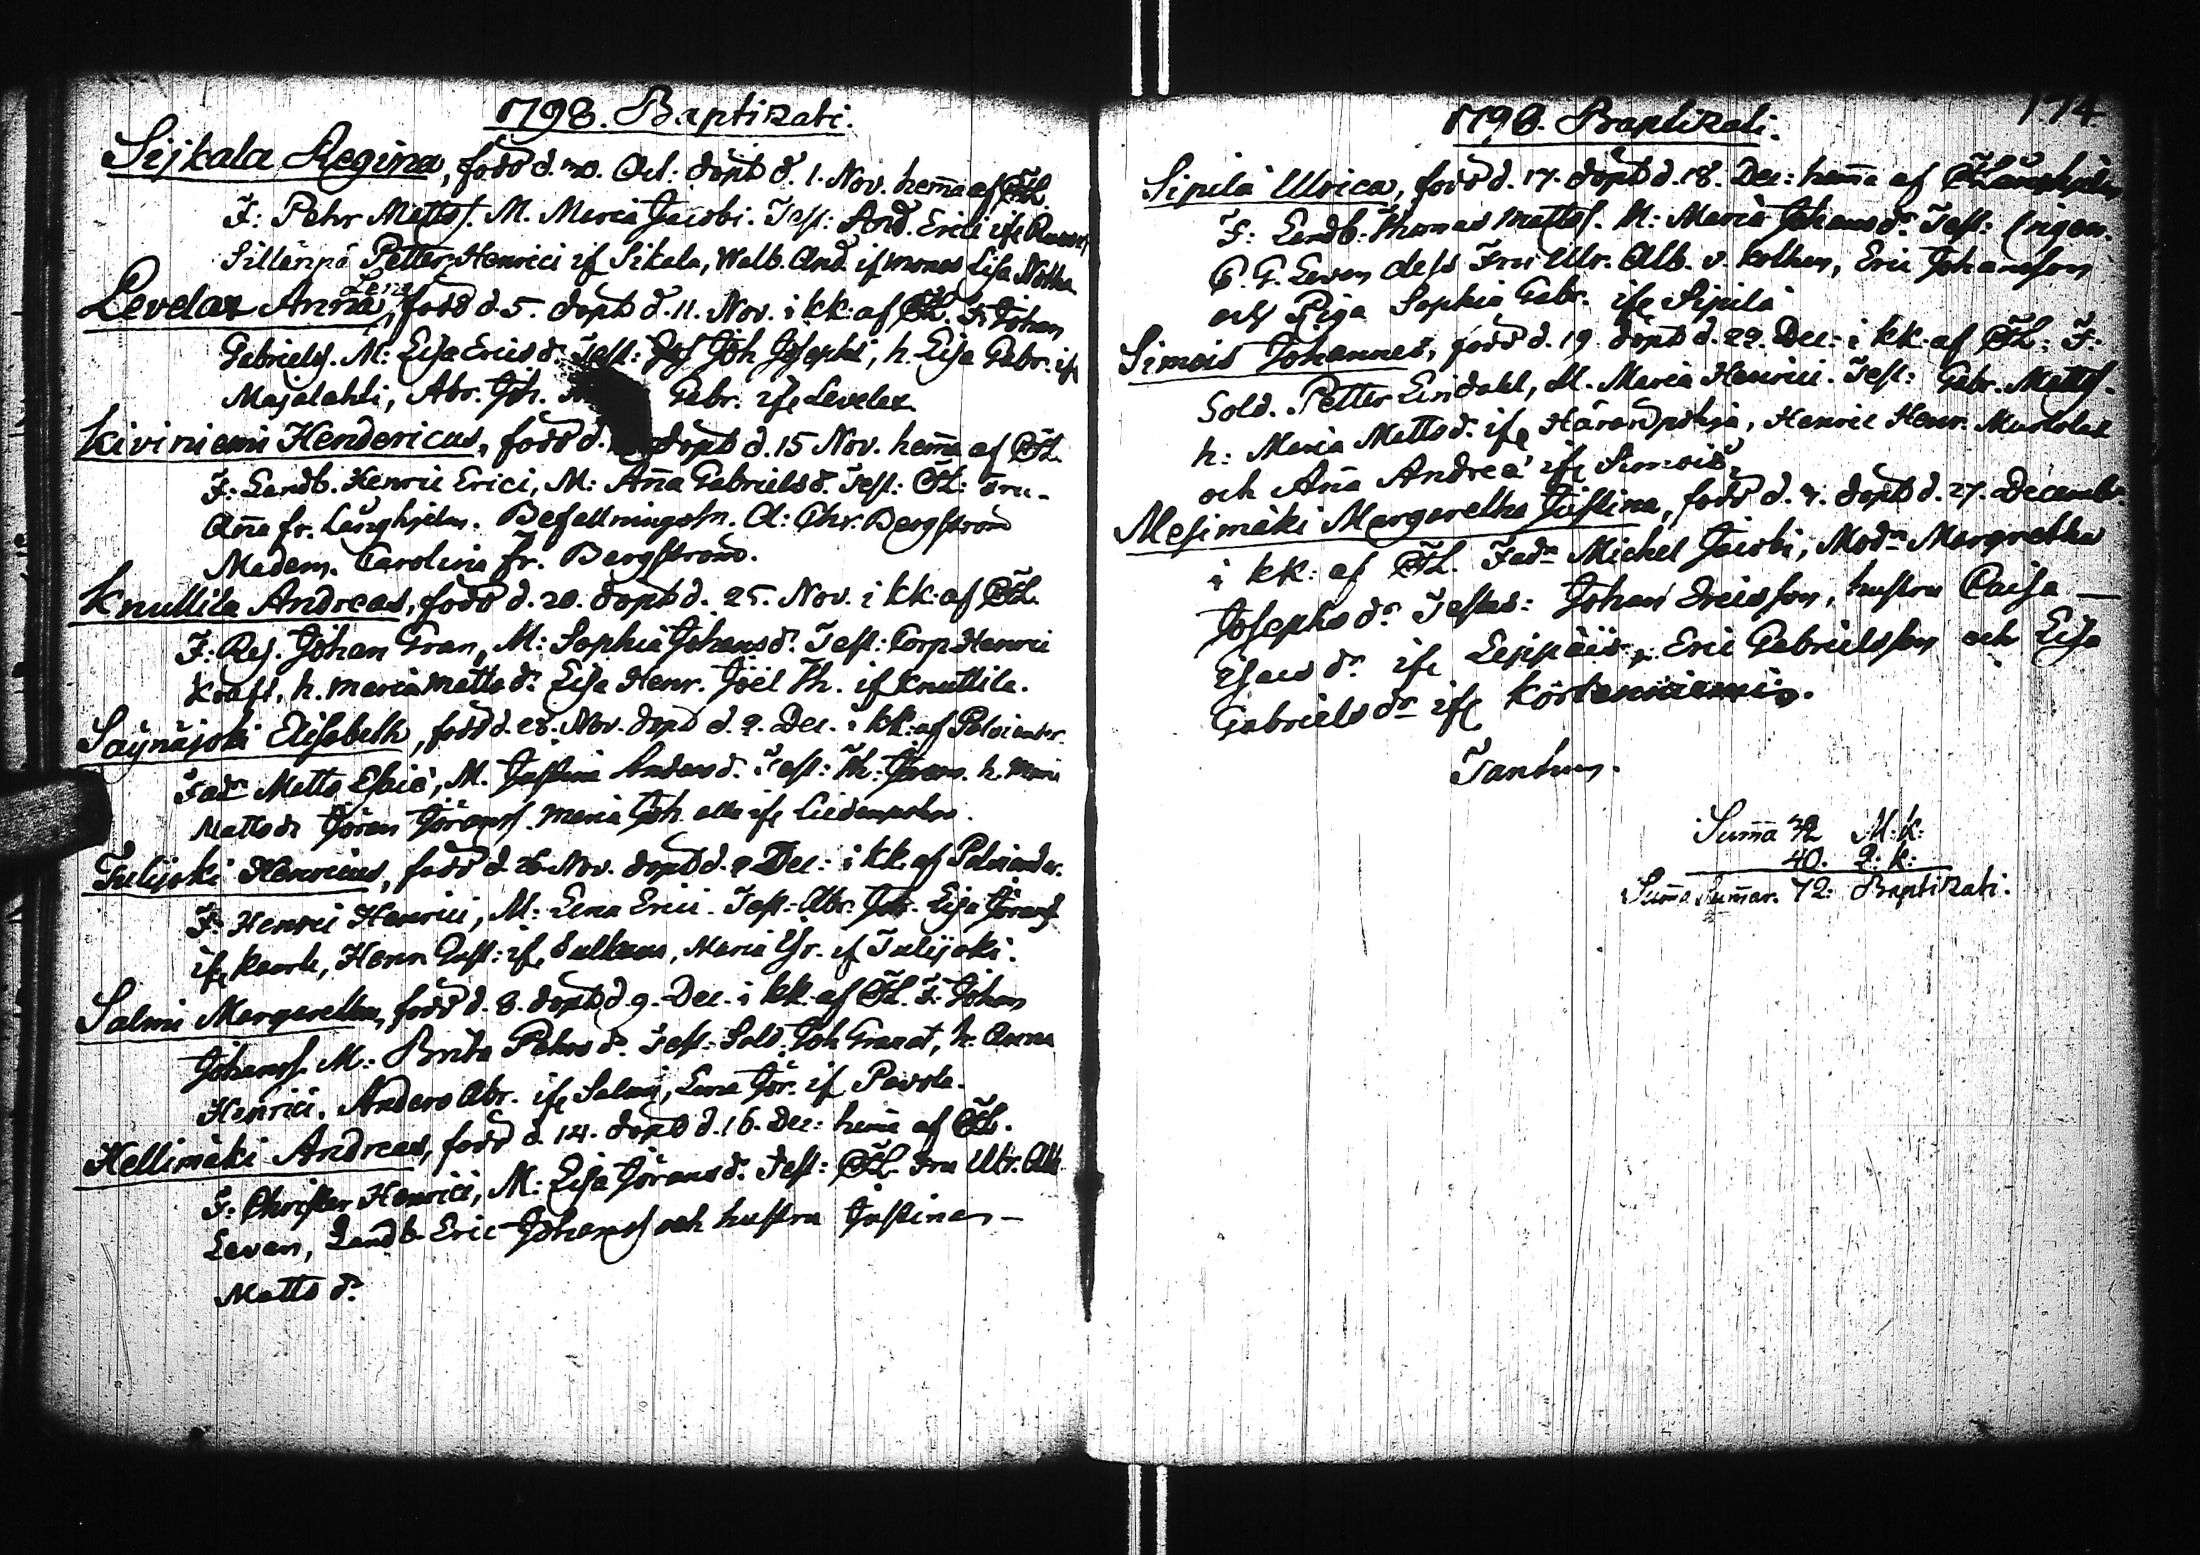 1798. Baptizati.
Sijkala Regina, född d. 30. Oct: döpt d. 1. Nov. hema af
F: Pehr Mattss. M. Maria Jacobi. Test: And. Erici ifr
Sillänpä Petter Henrici if Sikala, Walb. And. if Lisa
Levelax Anna Lena, född d. 5. döpt d. 11. Nov. i kk: af F: Johan
Gabrielss. M: Lisa Ericsdr. Test: Joh Josephi, h. Lisa Gabr. ifr
Majalahti, Abr. Joh. Gabr. ifr Levelax
Kiviniemi Hendericus, född d. döpt d. 15 Nov. hema af
F: Landb. Henric Erici, M: Aña Gabrielsdr. Test: Fru
Aña fr. Laurhjelm. Befallningsm. A: Chr. Bergström
Madem. Carolina Fr. Bergström.
Knuttila Andreas, född d. 20. döpt d. 25. Nov. i kk: af
F: Res. Johan Gran, M: Sophia Johansdr. Test: Corp. Henric
Kraft, h. Maria Mattsdr. Lisa Henr. Joël Th. if Knuttila.
Säynäjoki Elisabeth, född d. 28. Nov. döpt d. 2. Dec. i kk: af Polviander.
Fadr Matts Esaiæ, M. Justina Andersdr. Test: Th: h. Maria
Mattsdr Jöran Jöranss. Maria Joh. alla ifr
Tulijoki Henricus, född d. 26. Nov. döpt d. 2 Dec: i kk. af Polviander.
F: Henric Henrici, M: Lena Erici. Test: Abr: Joh. Lisa Jöransd
ifr Henr Gust: ifr Maria if Tulijoki.
Salmi Margaretha, född d. 8. döpt d. 9. Dec. i kk. af F: Johan
Johanss. M: Brita Pehrsdr. Test: Sold. Joh Granat, h. Anna
Henrici. Anders Abr. ifr Salmi, Lena Jör. if Pavola.
Hellimäki Andreas, född d. 14. döpt d. 16. Dec: hema af
F: Christer Henrici, M: Lisa Jöransdr. Test: Fru Ulr. Alb.
Leven, Landb. Eric Johanss och hustru Justina
Mattsdr
174.
1798. Baptizati.
Sipilä Ulrica, född d. 17. döpt d. 18. Dec: hema af
F: Landb. Thomas Mattss. M: Maria Johansdr. Test:
C. G. Leven dess Fru Ulr. Alb. v. Kothen, Eric Johansson
och Piga Sophia Gabr. ifr Sipilä
Simois Johannes, född d. 19. döpt d. 22. Dec: i kk. af F:
Sold. Petter Lindahl, M. Maria Henrici. Test: Gabr. Mattss.
h: Maria Mattsdr. ifr Henric Henr.
och Aña Andreæ ifr Simois.
Mesimäki Margaretha Justina, född d. döpt d. 27. Decemb.
i kk: af Fadr Michel Jacobi, Modr Margretha
Josephsdr Testes: Johan Ericsson, hustru Caisa
Esaisdr ifr Leppäis, Eric Gabrielsson och Lisa
Gabrielsdr ifr Körtesniemi.
Tantum.
Suma 32 M: k:
40. Q: k:
Suma Sumar. 72: Baptizati.